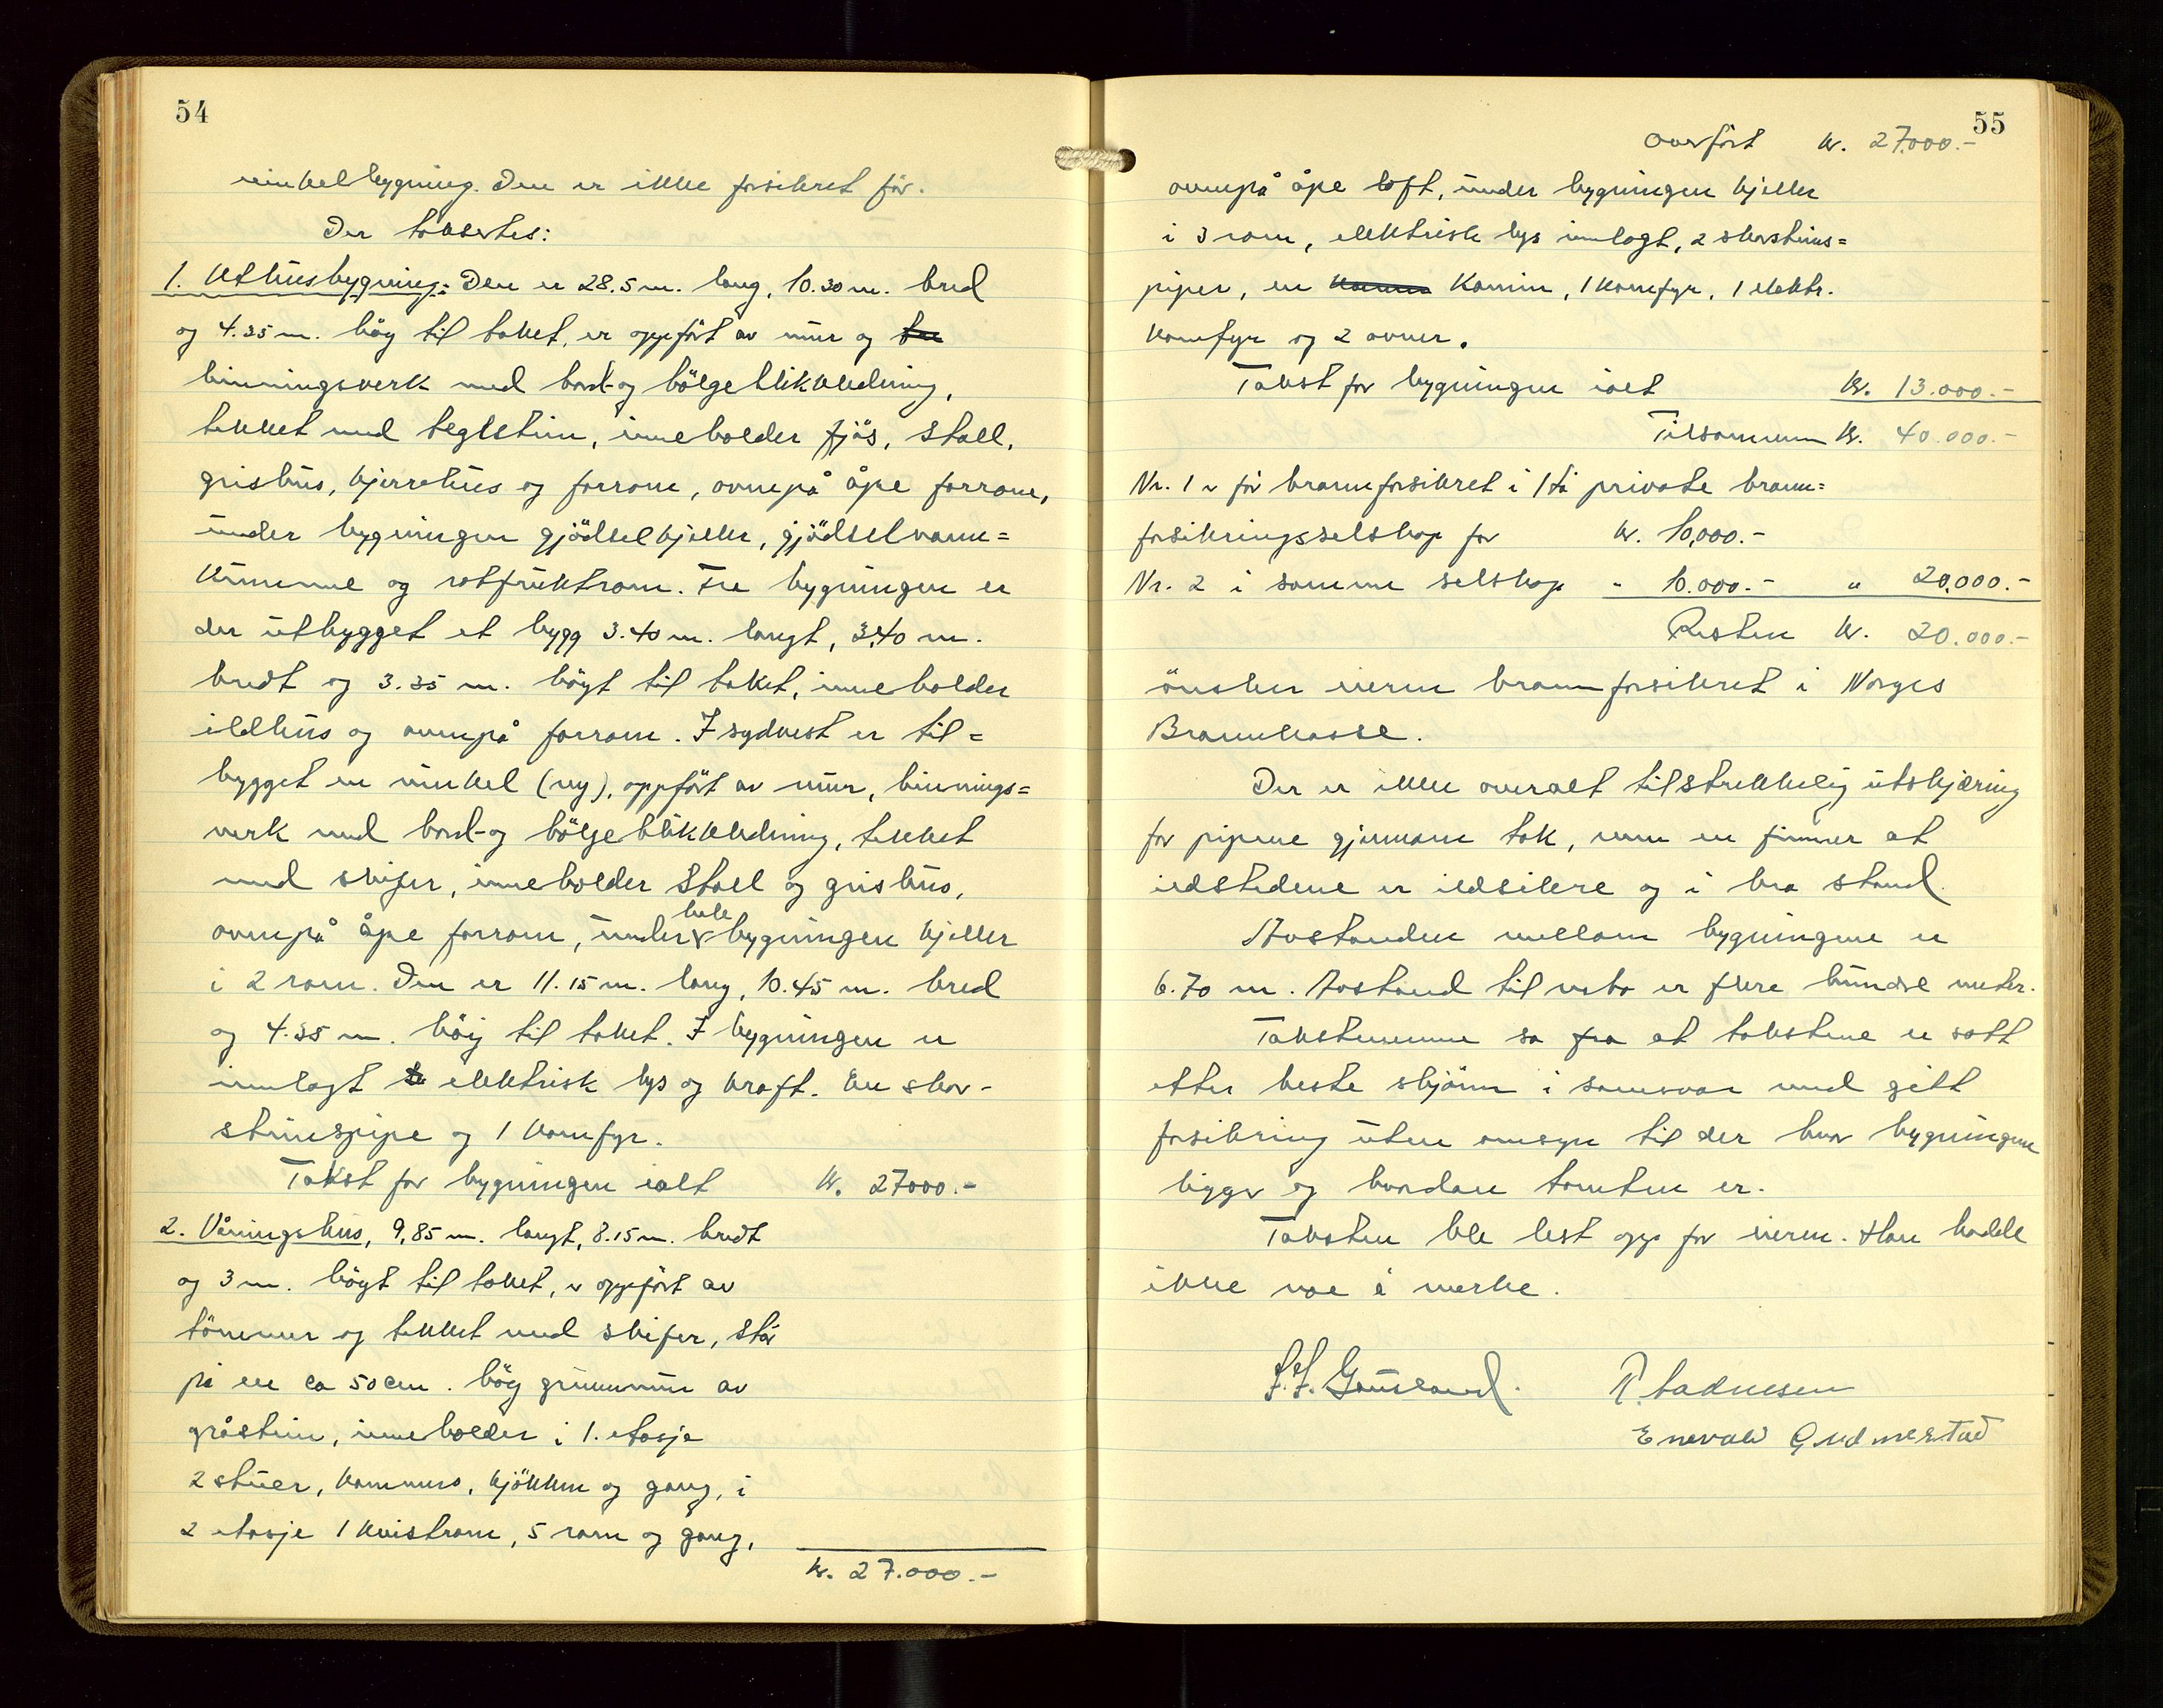 54
vinkelbygning. Den er ikke forsikret før.
Der takstertes:
1. Uthusbygning: Den er 28.5 m. lang, 10.30 m. bred
og 4.35 m. høg til taket, er oppført av mur og tre
binningsverk med bord- og bölgeblikkledning,
tekket med teglstein, inneholder fjös, stall,
grishus, kjerrehus og forrom, ovenpå åpe forrom,
under bygningen gjödselkjeller, gjödselvann=
kumme og rotfruktrom. Fra bygningen er
der utbygget et bygg 3.40 m. langt, 3,40 m.
bredt og 3.35 m. högt til taket, inneholder
ildhus og ovenpå forrom. I sydvest er til=
bygget en vinkel (ny), oppfört av mur, binnings=
verk med bord- og bölgeblikkledning, tekket
med skifer, inneholder stall og grishus,
ovenpå åpe forrom, under hele bygningen kjeller
i 2 rom. Den er 11.15 m. lang, 10.45 m. bred
og 4.35 m. höy til taket. I bygningen er
innlagt elektrisk lys og kraft. En skor-
steinspipe og 1 komfyr.
Takst for bygningen ialt kr. 27000.-
2. Våningshus, 9,85 m. langt, 8.15 m. bredt
og 3 m. högt til taket, er oppfört av
tömmer og tekket med skifer, står
på en ca 50 cm. höy grunnmur av
gråstein, inneholder i 1. etasje
2 stuer, kammers, kjökken og gang, i
2 etasje 1 kvistrom, 5 rom og gang,
kr. 27.000.-
55
Overfört kr. 27.000.-
ovenpå åpe loft, under bygningen kjeller
i 3 rom, elektrisk lys innlagt, 2 skorsteins=
piper, en Kamin, 1 komfyr, 1 elektr.
komfyr og 2 ovner.
Takst for bygningen ialt kr. 13.000.-
Tilsammen kr. 40.000.-
Nr. 1 er før brannforsikret i private brann=
forsikringsselskap for kr. 10,000.-
Nr. 2 i samme selskap " 10.000.- " 20,000.-
Resten kr. 20.000.-
önsker eieren brannforsikret i Norges
Brannkasse.
Der er ikke overalt tilstrekkelig utskjæring
for pipene gjennom tak, men en finner at
ildstedene er ildsikre og i bra stand.
Avstanden mellom bygningene er
6.70 m. Avstand til nabo er flere hundre meter.
Takstmennene sa fra at takstene er satt
etter beste skjönn i samsvar med gitt
forsikring uten omsyn til der hvor bygningene
ligger og hvordan tomten er.
Taksten ble lest opp for eieren. Han hadde
ikke noe å merke.
Enevald Gudmestad